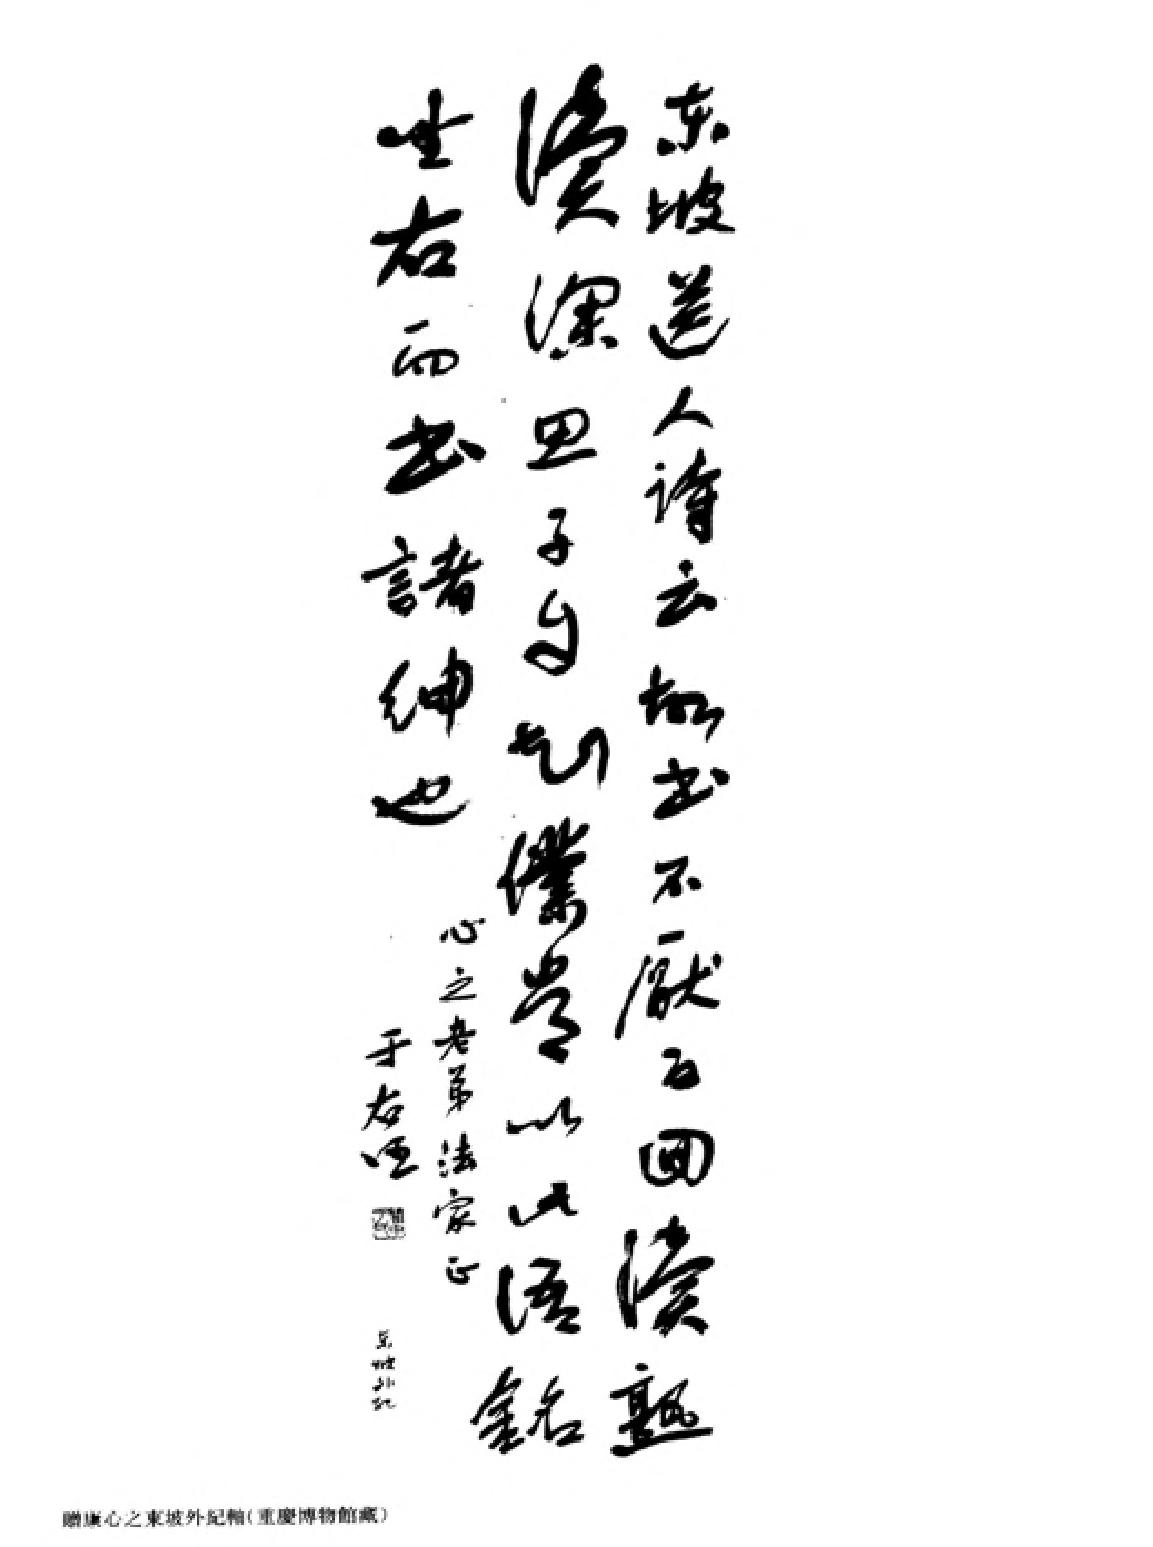 東坡送人詩云故書不厭百回讀熟
讀深思子自知僕嘗以此語銘
坐右而書諸紳也
心之老弟法家正
于右任
東坡外紀
贈康心之東坡外紀軸(重慶博物館藏)